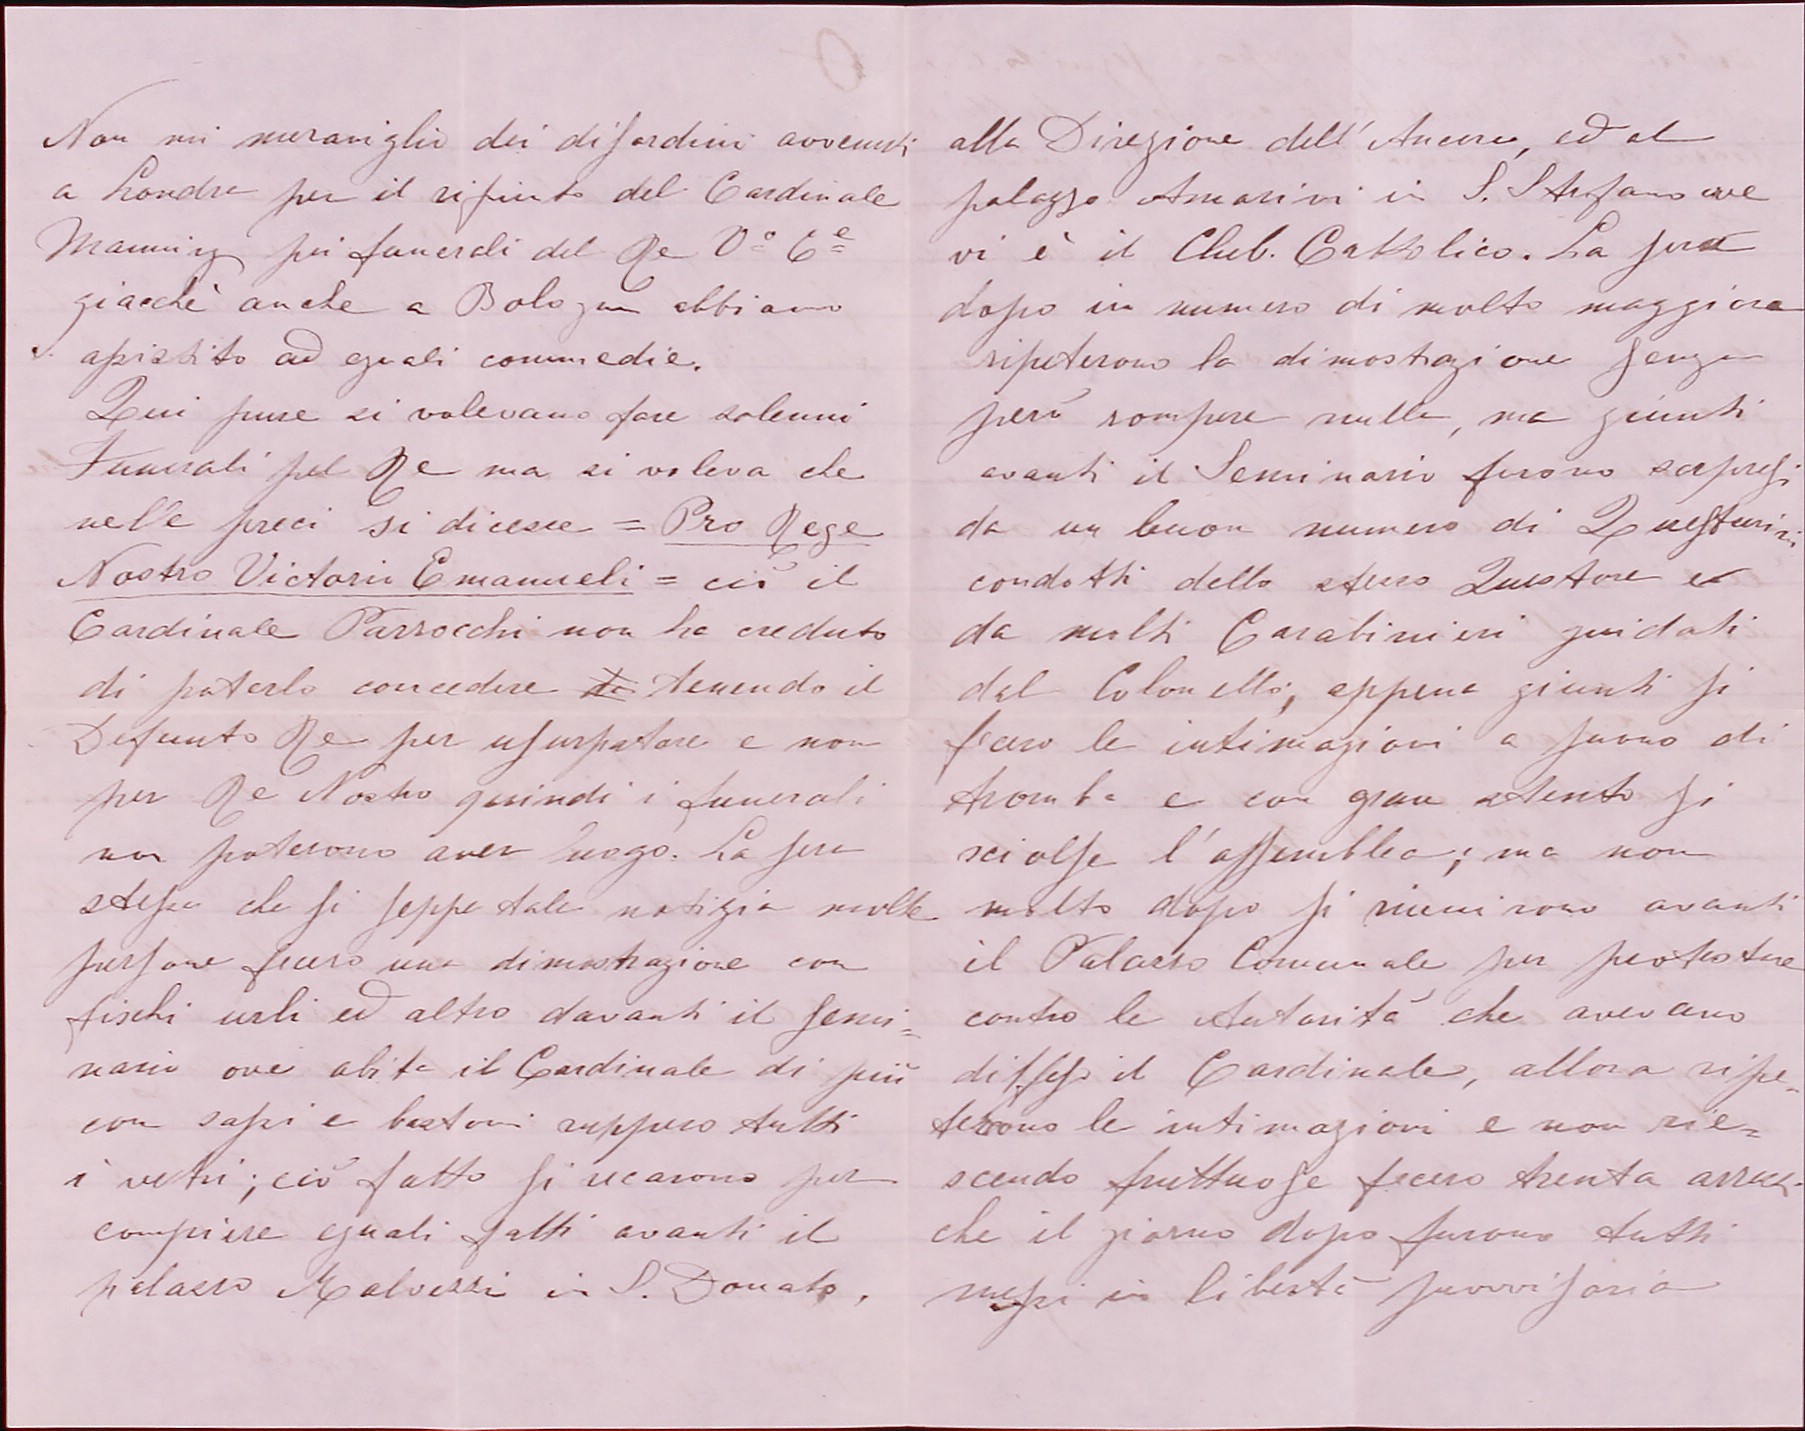 Non mi meraviglio dei disordini avvenuti
a Londra per il rifiuto del Cardinale
Manning pei funerali del Re V.º E.e
giacchè anche a Bologna abbiamo
assistito ad eguali commedie.
Qui pure si volevano fare solenni
Funerali pel Re ma si voleva che
nelle preci si dicesse = Pro Rege
Nostro Victorio Emanueli = ciò il
Cardinale Parrocchi non ha creduto
di poterlo concedere te tenendo il
Defunto Re per usurpatore e non
per Re Nostro quindi i funerali
non poterono aver luogo. La sera
stessa che si seppe tale notizia molte
persone fecero una dimostrazione con
fischi urli ed altro davanti il Semi=
nario ove abita il Cardinale di più
con sassi e bastoni ruppero tutti
i vetri; ciò fatto si recarono per
compiere eguali fatti avanti il
palazzo Malvezzi in S. Donato,
alla Direzione dell'Ancora, ed al
palazzo Amorini in S. Stefano ove
vi è il Club. Cattolico. La sera
dopo in numero di molto maggiore
ripeterono la dimostrazione senza
però rompere nulla, ma giunti
avanti il Seminario furono sorpresi
da un buon numero di Questurini
condotti dallo stesso Questore e
da molti Carabinieri guidati
dal Colonello; appena giunti si
fecero le intimazioni a suono di
tromba e con gran stento si
sciolse l'assemblea; ma non
molto dopo si riunirono avanti
il Palazzo Comunale per protestare
contro le Autorità che avevano
difeso il Cardinale, allora ripe=
terono le intimazioni e non rie=
scendo fruttuose fecero trenta arresti
che il giorno dopo furono tutti
messi in libertà provvisoria